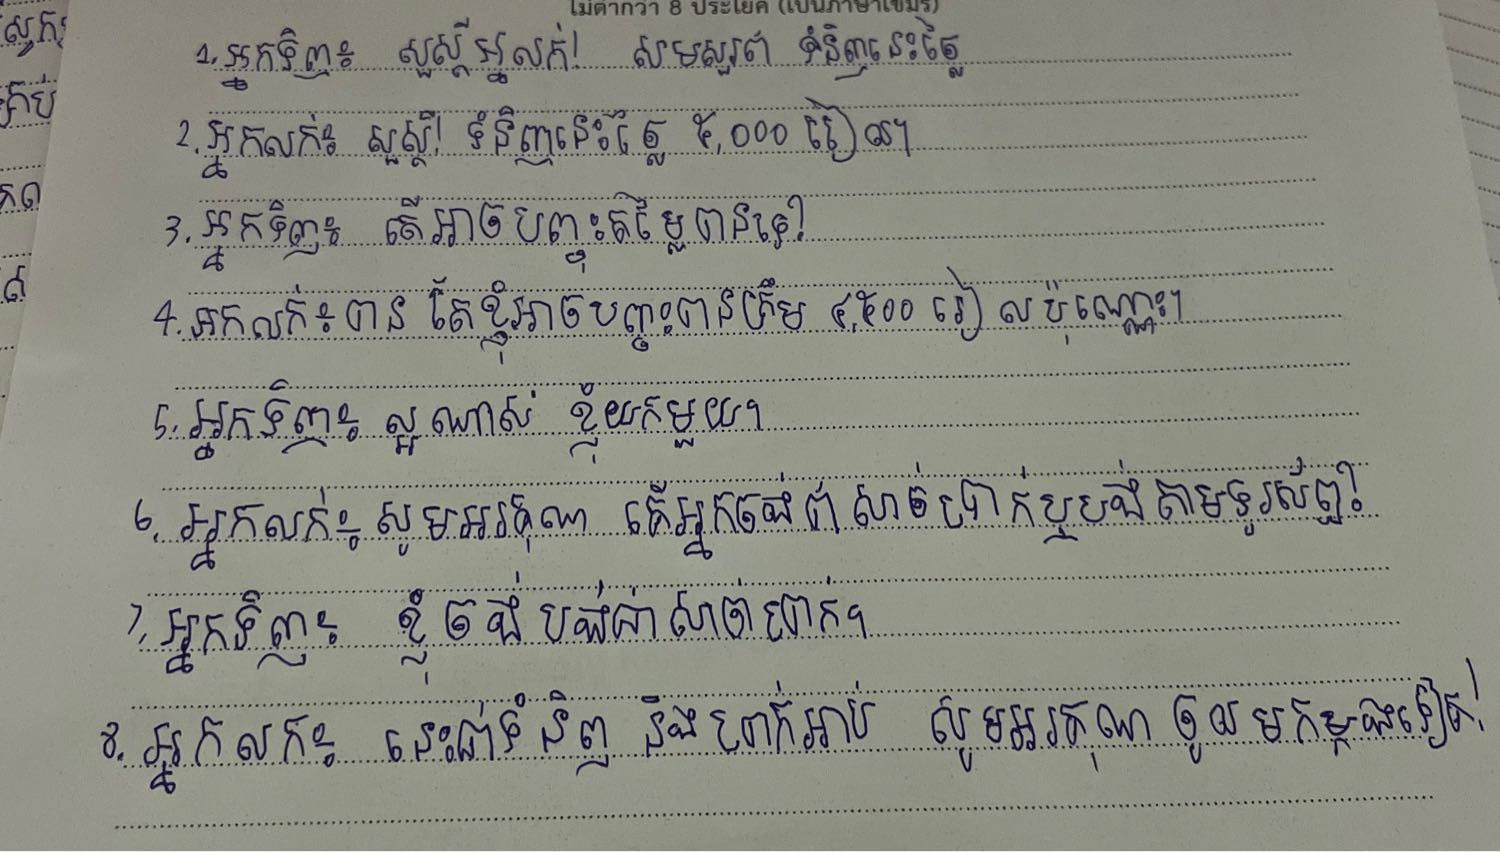 ไม่ต่ำกว่า 8 ประโยค (เป็นภาษาเขมร)
1. អ្នកទិញ៖ សួស្តីអ្នលក់! សមសួរថា ទំនិញនេះថ្លៃ
2. អ្នកលក់៖ សួស្តី! ទំនិញនេះថ្លៃ ៥,០០០ រៀល។
3. អ្នកទិញ៖ តើអាចបញ្ចុះតម្លៃបានទេ?
4. អកលក់៖ បាន តែខ្ញុំអាចបញ្ចុះបានត្រឹម ៤,៥០០ រៀលប៉ុណ្ណោះ។
5. អ្នកទិញ៖ ល្អណាស់ ខ្ញុំយកមួយ។
6. អ្នកលក់៖ សូមអរគុណ តើអ្នកចង់ជាសាច់ប្រាក់ឬបង់តាមទូរស័ព្ទ?
7. អ្នកទិញ៖ ខ្ញុំចង់បង់ជាសាច់ប្រាក់។
8. អ្នកលក់៖ នេះជាទំនិញ និងប្រាក់អាប់ សូមអរគុណ ចូលមកម្តងទៀត!